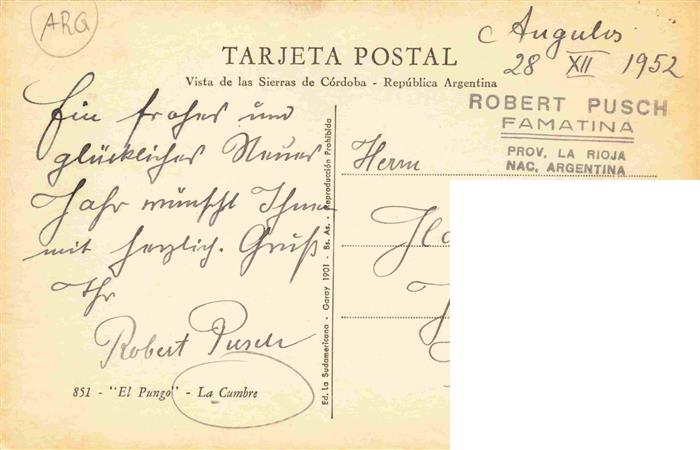 ARG
Angulos
28 XII 1952
TARJETA POSTAL
Vista de las Sierras de Córdoba - República Argentina
ROBERT PUSCH
FAMATINA
PROV. LA RIOJA
NAC. ARGENTINA
Ein frohes und
glückliches Neues
Jahr wünscht Ihnen
mit herzlich. Gruß
Ihr
Robert Pusch
851 - "El Pungo" - La Cumbre
Ed. La Sudamericana - Garay 1901 - Bs. As. - Reproducción Prohibida
Herrn